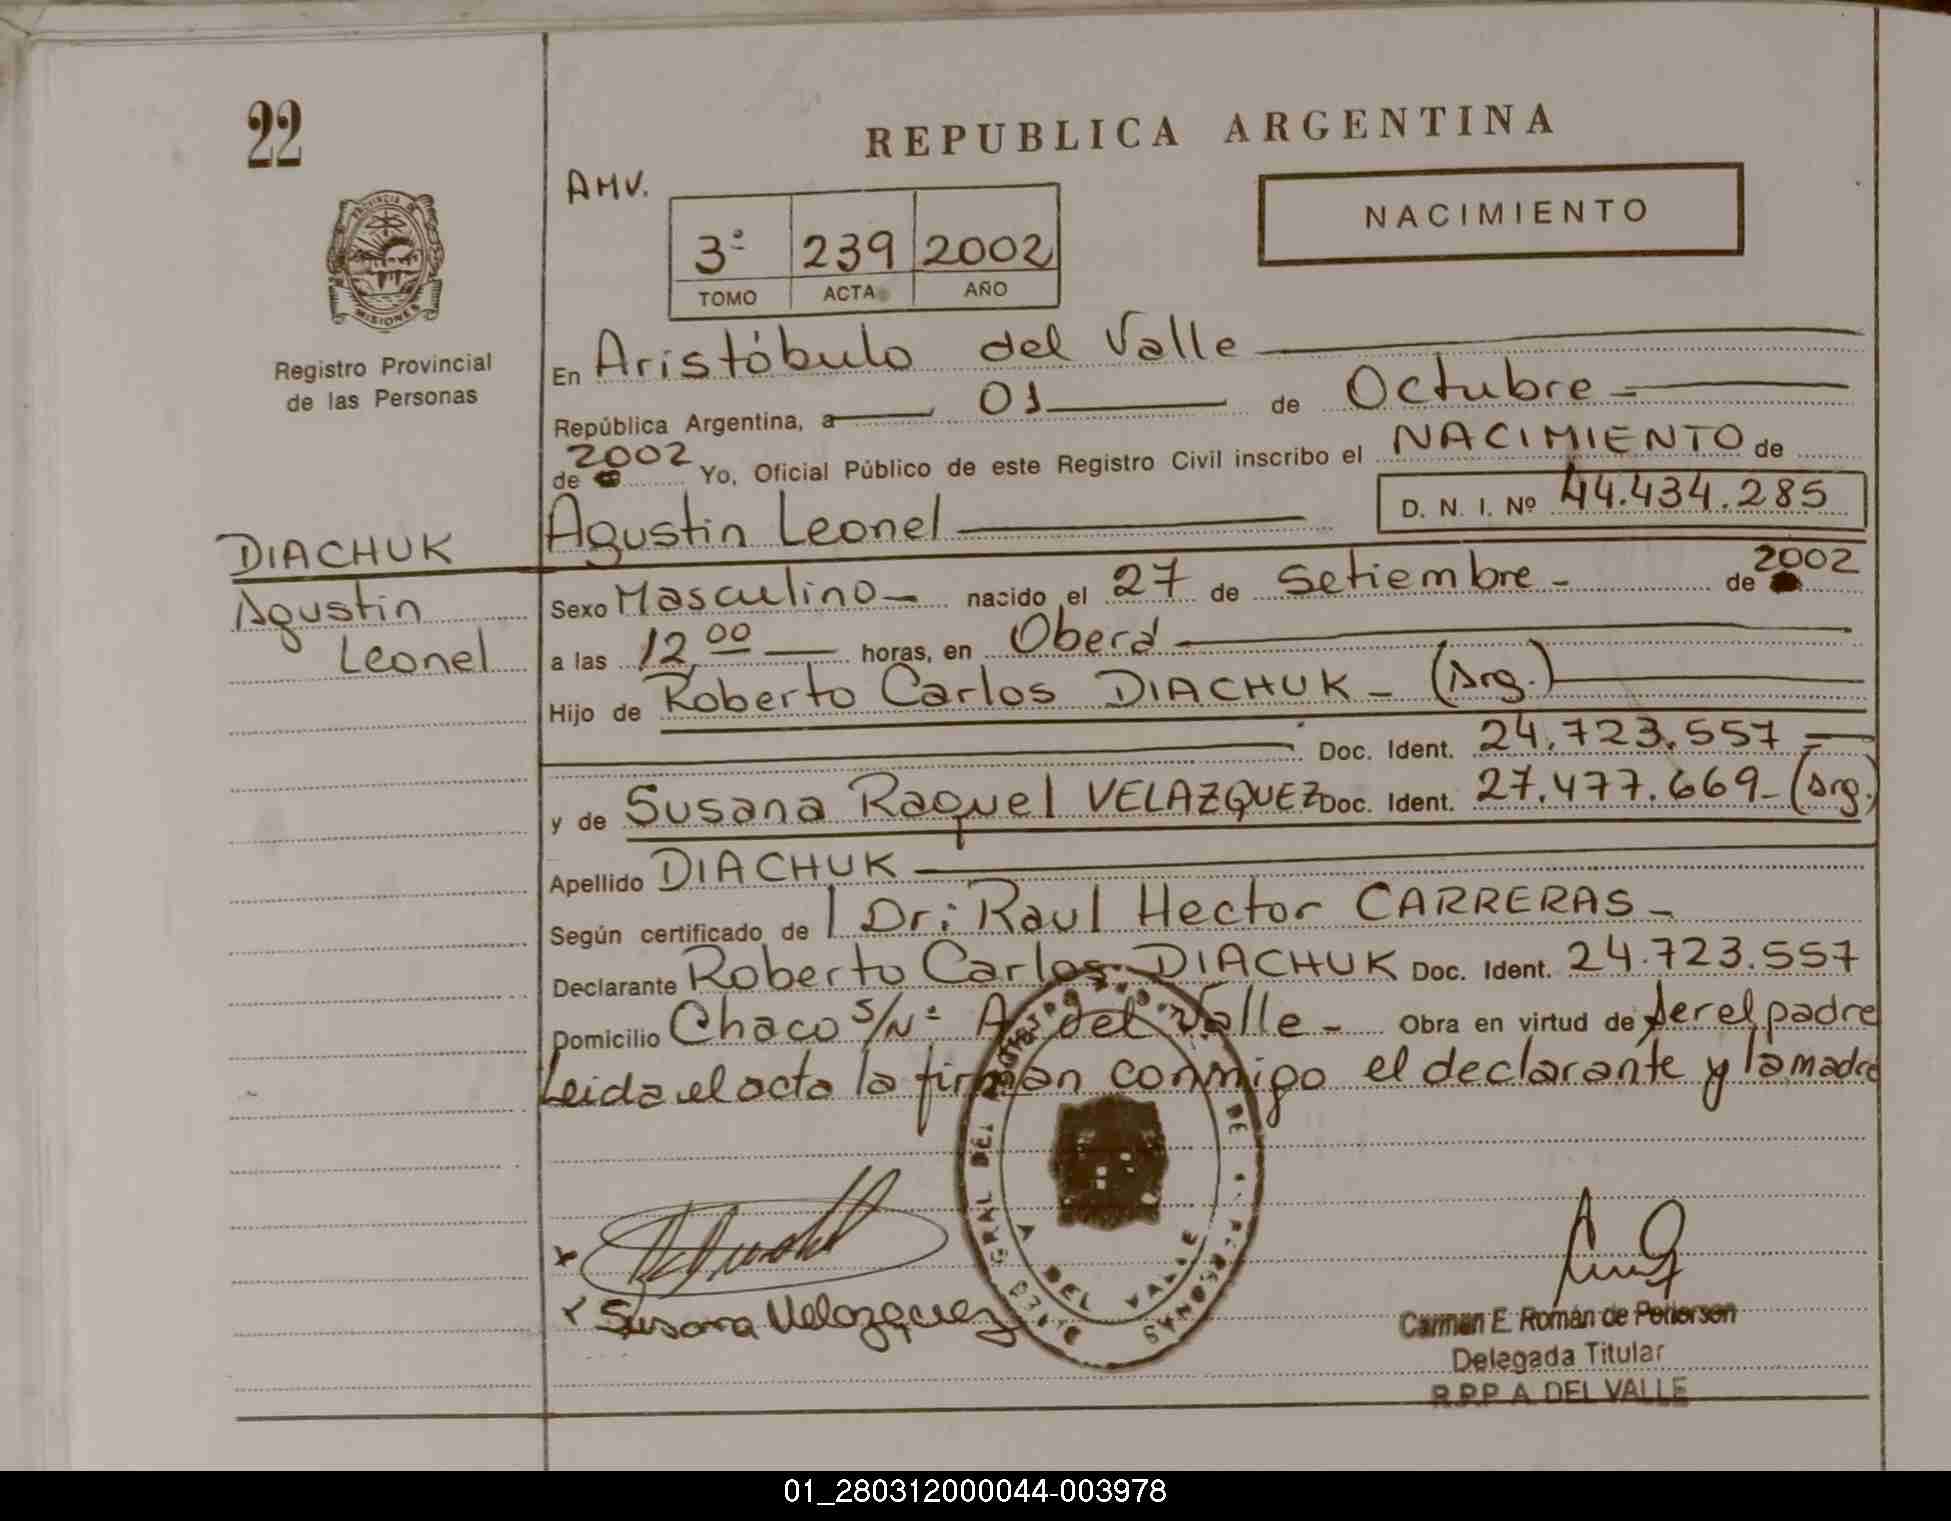 22
REPUBLICA ARGENTINA
AMV.
NACIMIENTO
3º 239 2002
TOMO ACTA AÑO
PROVINCIA DE MISIONES
Registro Provincial
de las Personas
En Aristóbulo del Valle
República Argentina, a 01 de Octubre
de 2002 Yo, Oficial Público de este Registro Civil inscribo el NACIMIENTO de
Agustin Leonel D. N. I. Nº 44.434.285
DIACHUK
Agustin
Leonel
Sexo Masculino nacido el 27 de Setiembre de 2002
a las 12,00 horas, en Oberá
Hijo de Roberto Carlos DIACHUK - (Arg.)
Doc. Ident. 24.723.557
y de Susana Raquel VELAZQUEZ Doc. Ident. 27.477.669 - (Arg.)
Apellido DIACHUK
Según certificado de Dr: Raul Hector CARRERAS -
Declarante Roberto Carlos DIACHUK Doc. Ident. 24.723.557
Domicilio Chaco S/Nº A. del Valle - Obra en virtud de ser el padre
Leida el acta la firman conmigo el declarante y la madre
GRAL DEL DE PERSONAS
A DEL VALLE
x Susana Velazquez
Carmen E. Román de Petersen
Delegada Titular
R.P.P. A. DEL VALLE
01_280312000044-003978